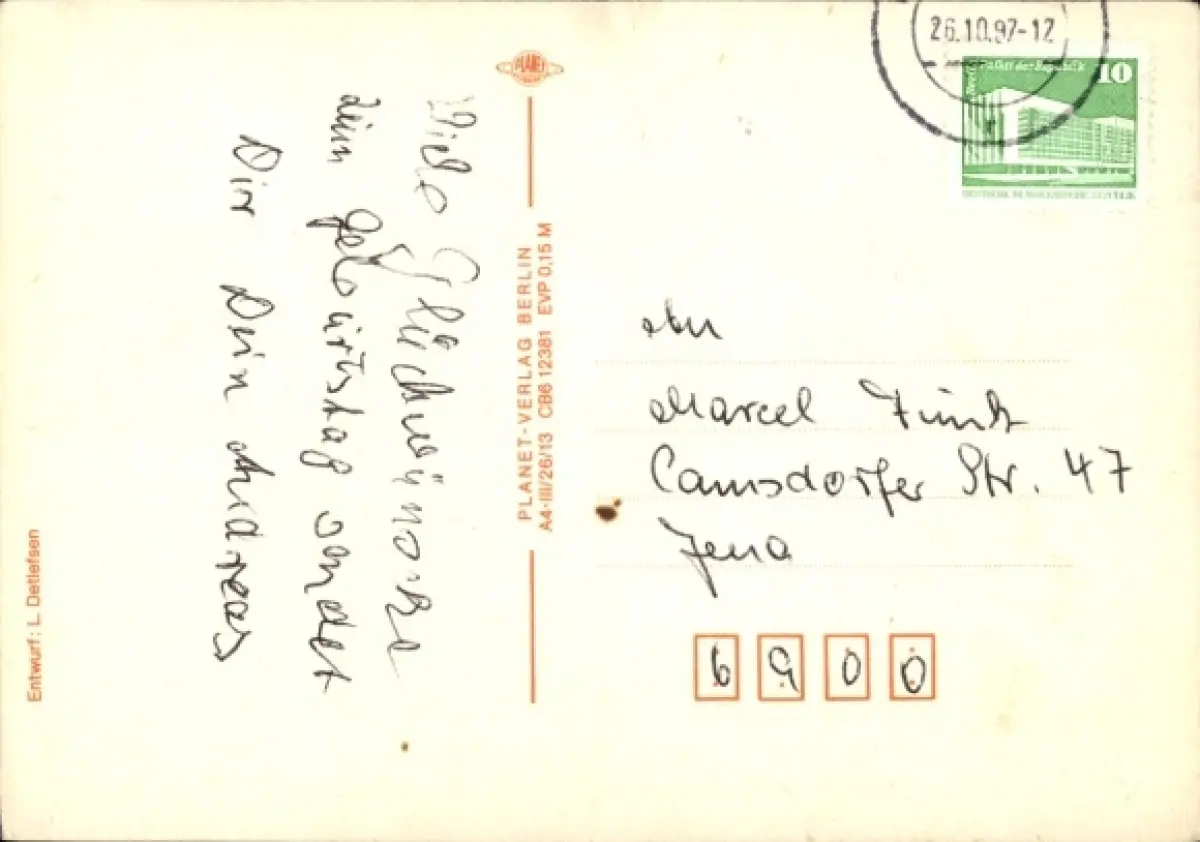 Viele Glückwünsche
zum Geburtstag sendet
Dir Dein Andreas
Entwurf: L. Detlefsen
PLANET
PLANET-VERLAG BERLIN
A4-III/26/13 CB6 12381 EVP 0,15 M
26.10.97-12
Palast der Republik 10
An
Marcel
Camsdorfer Str. 47
Jena
6900